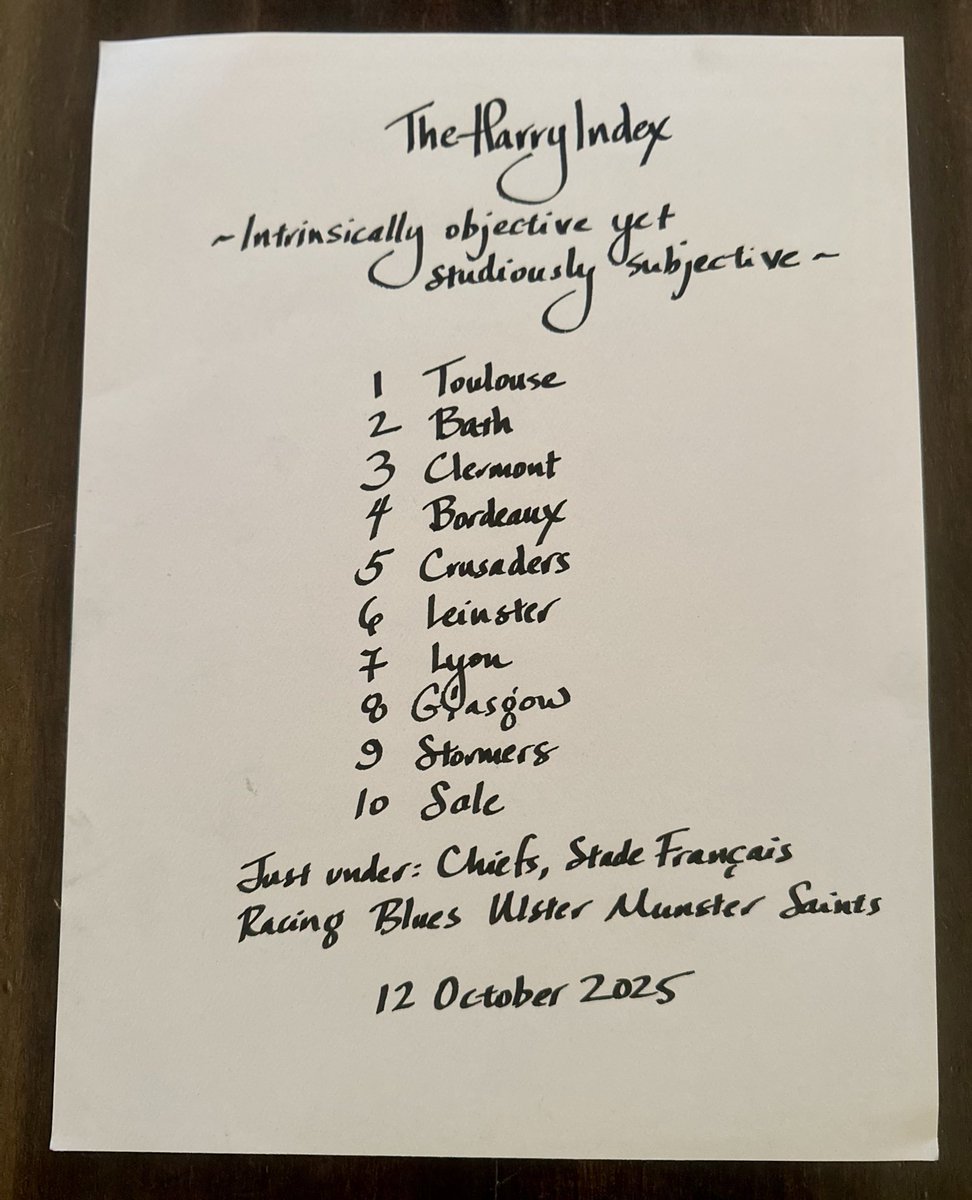 The Harry Index
~Intrinsically objective yet
studiously subjective~
1 Toulouse
2 Bath
3 Clermont
4 Bordeaux
5 Crusaders
6 Leinster
7 Lyon
8 Glasgow
9 Stormers
10 Sale
Just under: Chiefs, Stade Français
Racing Blues Ulster Munster Saints
12 October 2025